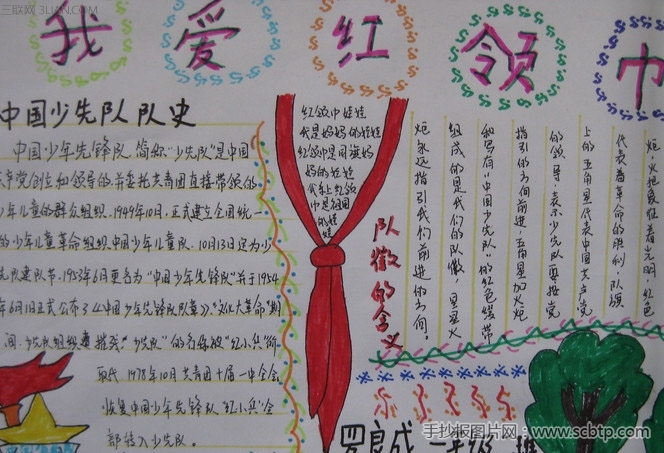 三联网 3LIAN.COM
我爱红领巾
中国少先队队史
中国少年先锋队,简称"少先队"是中国
共产党创立和领导的,并委托共青团直接带领的
少年儿童的群众组织.1949年10月,正式建立全国统一
的少年儿童革命组织中国少年儿童队.10月13日定为少
先队建队节.1953年6月更名为"中国少年先锋队"并于1954
年6月1日正式公布了《中国少年先锋队队章》.
间,少先队组织遭摧残."少先队"的名称被"红小兵"所
取代 1978年10月共青团十届一中全会
恢复中国少年先锋队"红小兵"全
部转入少先队.
红领巾娃娃
我是妈妈的娃娃
红领巾是同演妈
妈的娃娃
我红领
巾是祖国
的娃
娃
队徽的含义
炬,火把象征着光明,红色
代表为革命的胜利,队旗
上的五角星代表中国共产党
的领导,表示少先队要按党
指引的方向前进,五角星加火炬
和写有"中国少先队"的红色绶带
组成的是我们的队徽,星星火
炬永远指引我们前进的方向.
罗良成
手抄报图片网:www.scbtp.com